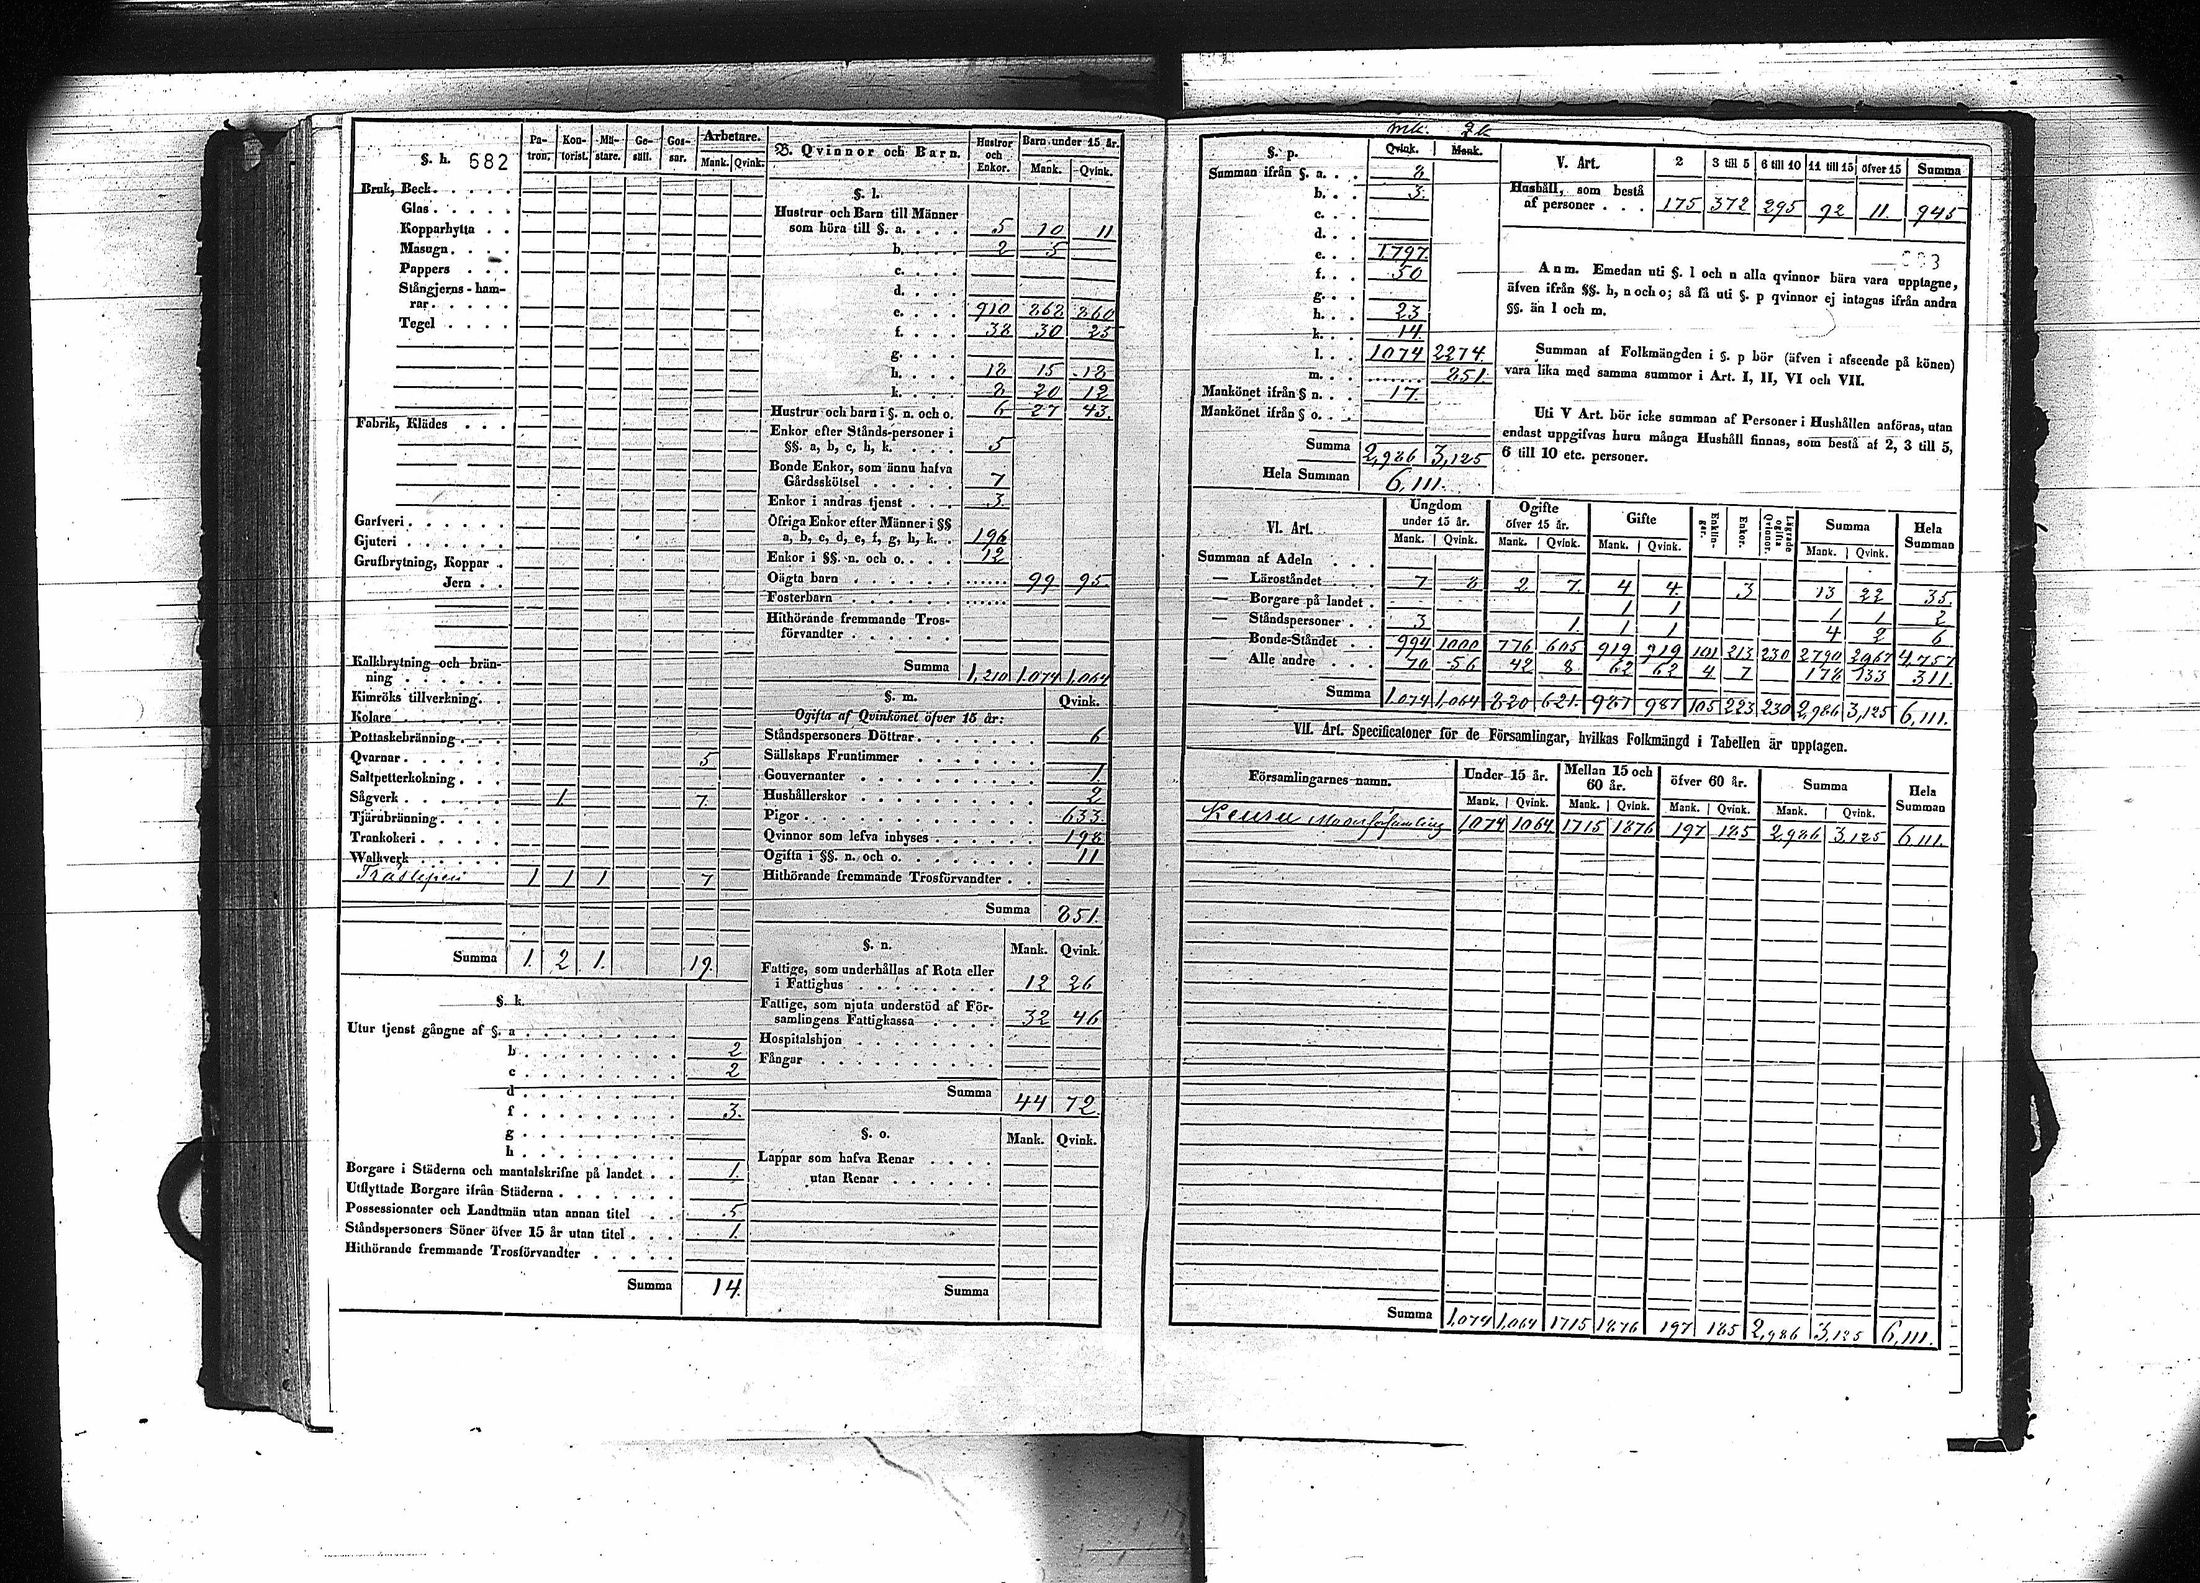 §. h. 682 Patron. Kontorist. Mästare. Gesäll. Gossar. Arbetare. Mank. Qvink.
Bruk, Beck
Glas
Kopparhytta
Masugn
Pappers
Stångjerns-hamrar
Tegel
Fabrik, Klädes
Garfveri
Gjuteri
Grufbrytning, Koppar
Jern
Kalkbrytning och bränning
Kimröks tillverkning
Kolare
Pottaskebränning
Qvarnar 5
Saltpetterkokning
Sågverk 1 7
Tjärubränning
Trankokeri
Walkverk
1 1 1 7
Summa 1. 2 1. 19.
§. k.
Utur tjenst gångne af §. a
b 2
c 2
d
f 3.
g
h
Borgare i Städerna och mantalskrifne på landet 1.
Utflyttade Borgare ifrån Städerna
Possessionater och Landtmän utan annan titel 5
Ståndspersoners Söner öfver 15 år utan titel 1.
Hithörande fremmande Trosförvandter
Summa 14.
B. Qvinnor och Barn. Hustror och Enkor. Barn under 15 år. Mank. Qvink.
§. l.
Hustrur och Barn till Männer
som höra till §. a. 5 10 11
b. 2 5
c.
d.
e. 910 868 860
f. 38 30 25
g.
h. 18 15 18
k. 8 20 12
Hustrur och barn i §. n. och o. 6 27 43.
Enkor efter Stånds-personer i
§§. a, b, c, h, k. 5
Bonde Enkor, som ännu hafva
Gårdsskötsel 7
Enkor i andras tjenst 3.
Öfriga Enkor efter Männer i §§
a, b, c, d, e, f, g, h, k. 196
Enkor i §§. n. och o. 12
Oägta barn 99 95.
Fosterbarn
Hithörande fremmande Trosförvandter
Summa 1,210 1,074 1,064
§. m. Qvink.
Ogifta af Qvinkönet öfver 15 år:
Ståndspersoners Döttrar 6
Sällskaps Fruntimmer
Gouvernanter 1.
Hushållerskor 2
Pigor 633
Qvinnor som lefva inhyses 198
Ogifta i §§. n. och o. 11
Hithörande fremmande Trosförvandter
Summa 851.
§. n. Mank. Qvink.
Fattige, som underhållas af Rota eller
i Fattighus 12 26
Fattige, som njuta understöd af Församlingens Fattigkassa 32 46
Hospitalshjon
Fångar
Summa 44 72.
§. o. Mank. Qvink.
Lappar som hafva Renar
utan Renar
Summa
mk. qk
§. p. Qvink. Mank.
Summan ifrån §. a. 8
b. 3.
c.
d.
e. 1797.
f. 50
g.
h. 23
k. 14.
l. 1074 2274.
m. 851.
Mankönet ifrån § n. 17.
Mankönet ifrån § o.
Summa 2,986 3,125
Hela Summan 6,111.
V. Art. 2 3 till 5 6 till 10 11 till 15 öfver 15 Summa
Hushåll, som bestå
af personer 175 372 295 92 11. 945
Anm. Emedan uti §. l och n alla qvinnor bära vara upptagne,
äfven ifrån §§. h, n och o; så få uti §. p qvinnor ej intagas ifrån andra
§§. än l och m.
Summan af Folkmängden i §. p bör (äfven i afseende på könen)
vara lika med samma summor i Art. I, II, VI och VII.
Uti V Art. bör icke summan af Personer i Hushållen anföras, utan
endast uppgifvas huru många Hushåll finnas, som bestå af 2, 3 till 5,
6 till 10 etc. personer.
VI. Art. Ungdom under 15 år. Ogifte öfver 15 år. Gifte Enklingar. Enkor. Lägrade ogifta Qvinnor. Summa Hela Summan
Mank. Qvink. Mank. Qvink. Mank. Qvink. Mank. Qvink.
Summan af Adeln
— Läroståndet 7 8 2 7. 4 4. 3 13 22 35.
— Borgare på landet 1 1 1 1 2
— Ståndspersoner 3 1. 1 1 4 2 6
— Bonde-Ståndet 994 1000 776 605 919 919 101 213 230 2790 2967 4,757
— Alle andre 70 56 42 8 62 62 4 7 178 133 311.
Summa 1,074 1,064 820 621. 987 987 105 223 230 2,986 3,125 6,111.
VII. Art. Specificatoner för de Församlingar, hvilkas Folkmängd i Tabellen är upptagen.
Församlingarnes namn. Under 15 år. Mellan 15 och 60 år. öfver 60 år. Summa Hela Summan
Mank. Qvink. Mank. Qvink. Mank. Qvink. Mank. Qvink.
Keuru Moderförsamling 1,074 1064 1715 1876 197 185 2,986 3,125 6,111.
Summa 1,074 1,064 1715 1876 197 185 2,986 3,125 6,111.